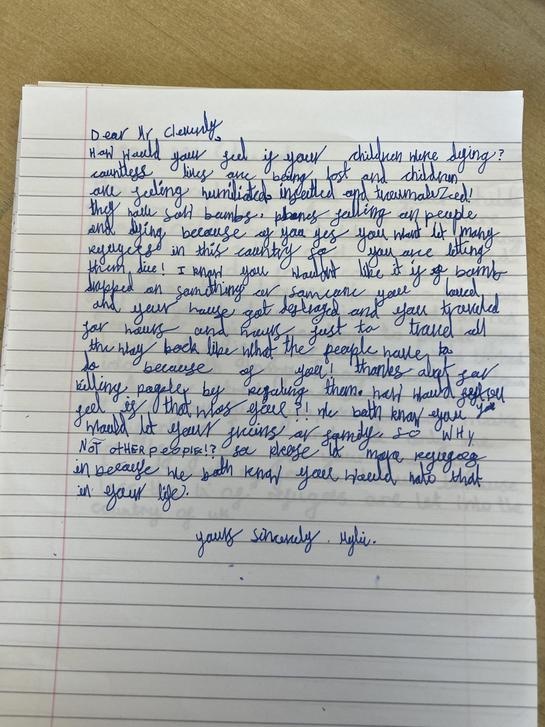 Dear Mr Cleverly,
How would your feel if your children were dying?
countless lives are being lost and children
are feeling humiliated, insetled and traumalizced!
they have saw bombs. planes falling on people
and dying because of you yes you wont let many
refugees in this country so you are letting
them die! I know you wouldnt like it if a bomb
dropped on something or someone your loved
and your house got destroyed and you traveled
for hours and hours just to travel all
the way back like what the people have to
do because of you! thanks alot for
killing people by regecting them. how would you
feel is that was your?! we both know you
would let your friens or family. SO WHY
NOT OTHER PEOPLE!? so please let more refugees
in because we both know your would hate that
in your life.
yours sincerely.